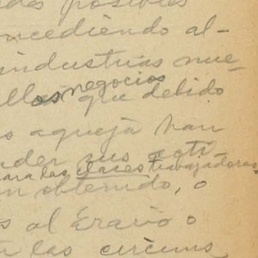 des posibles
oncediendo al-
industrias nue-
llos negocios que debido
s aqueja han
nder sus acti
para las claces trabajadoras
n obtenido, o
s al Erario o
n las circuns